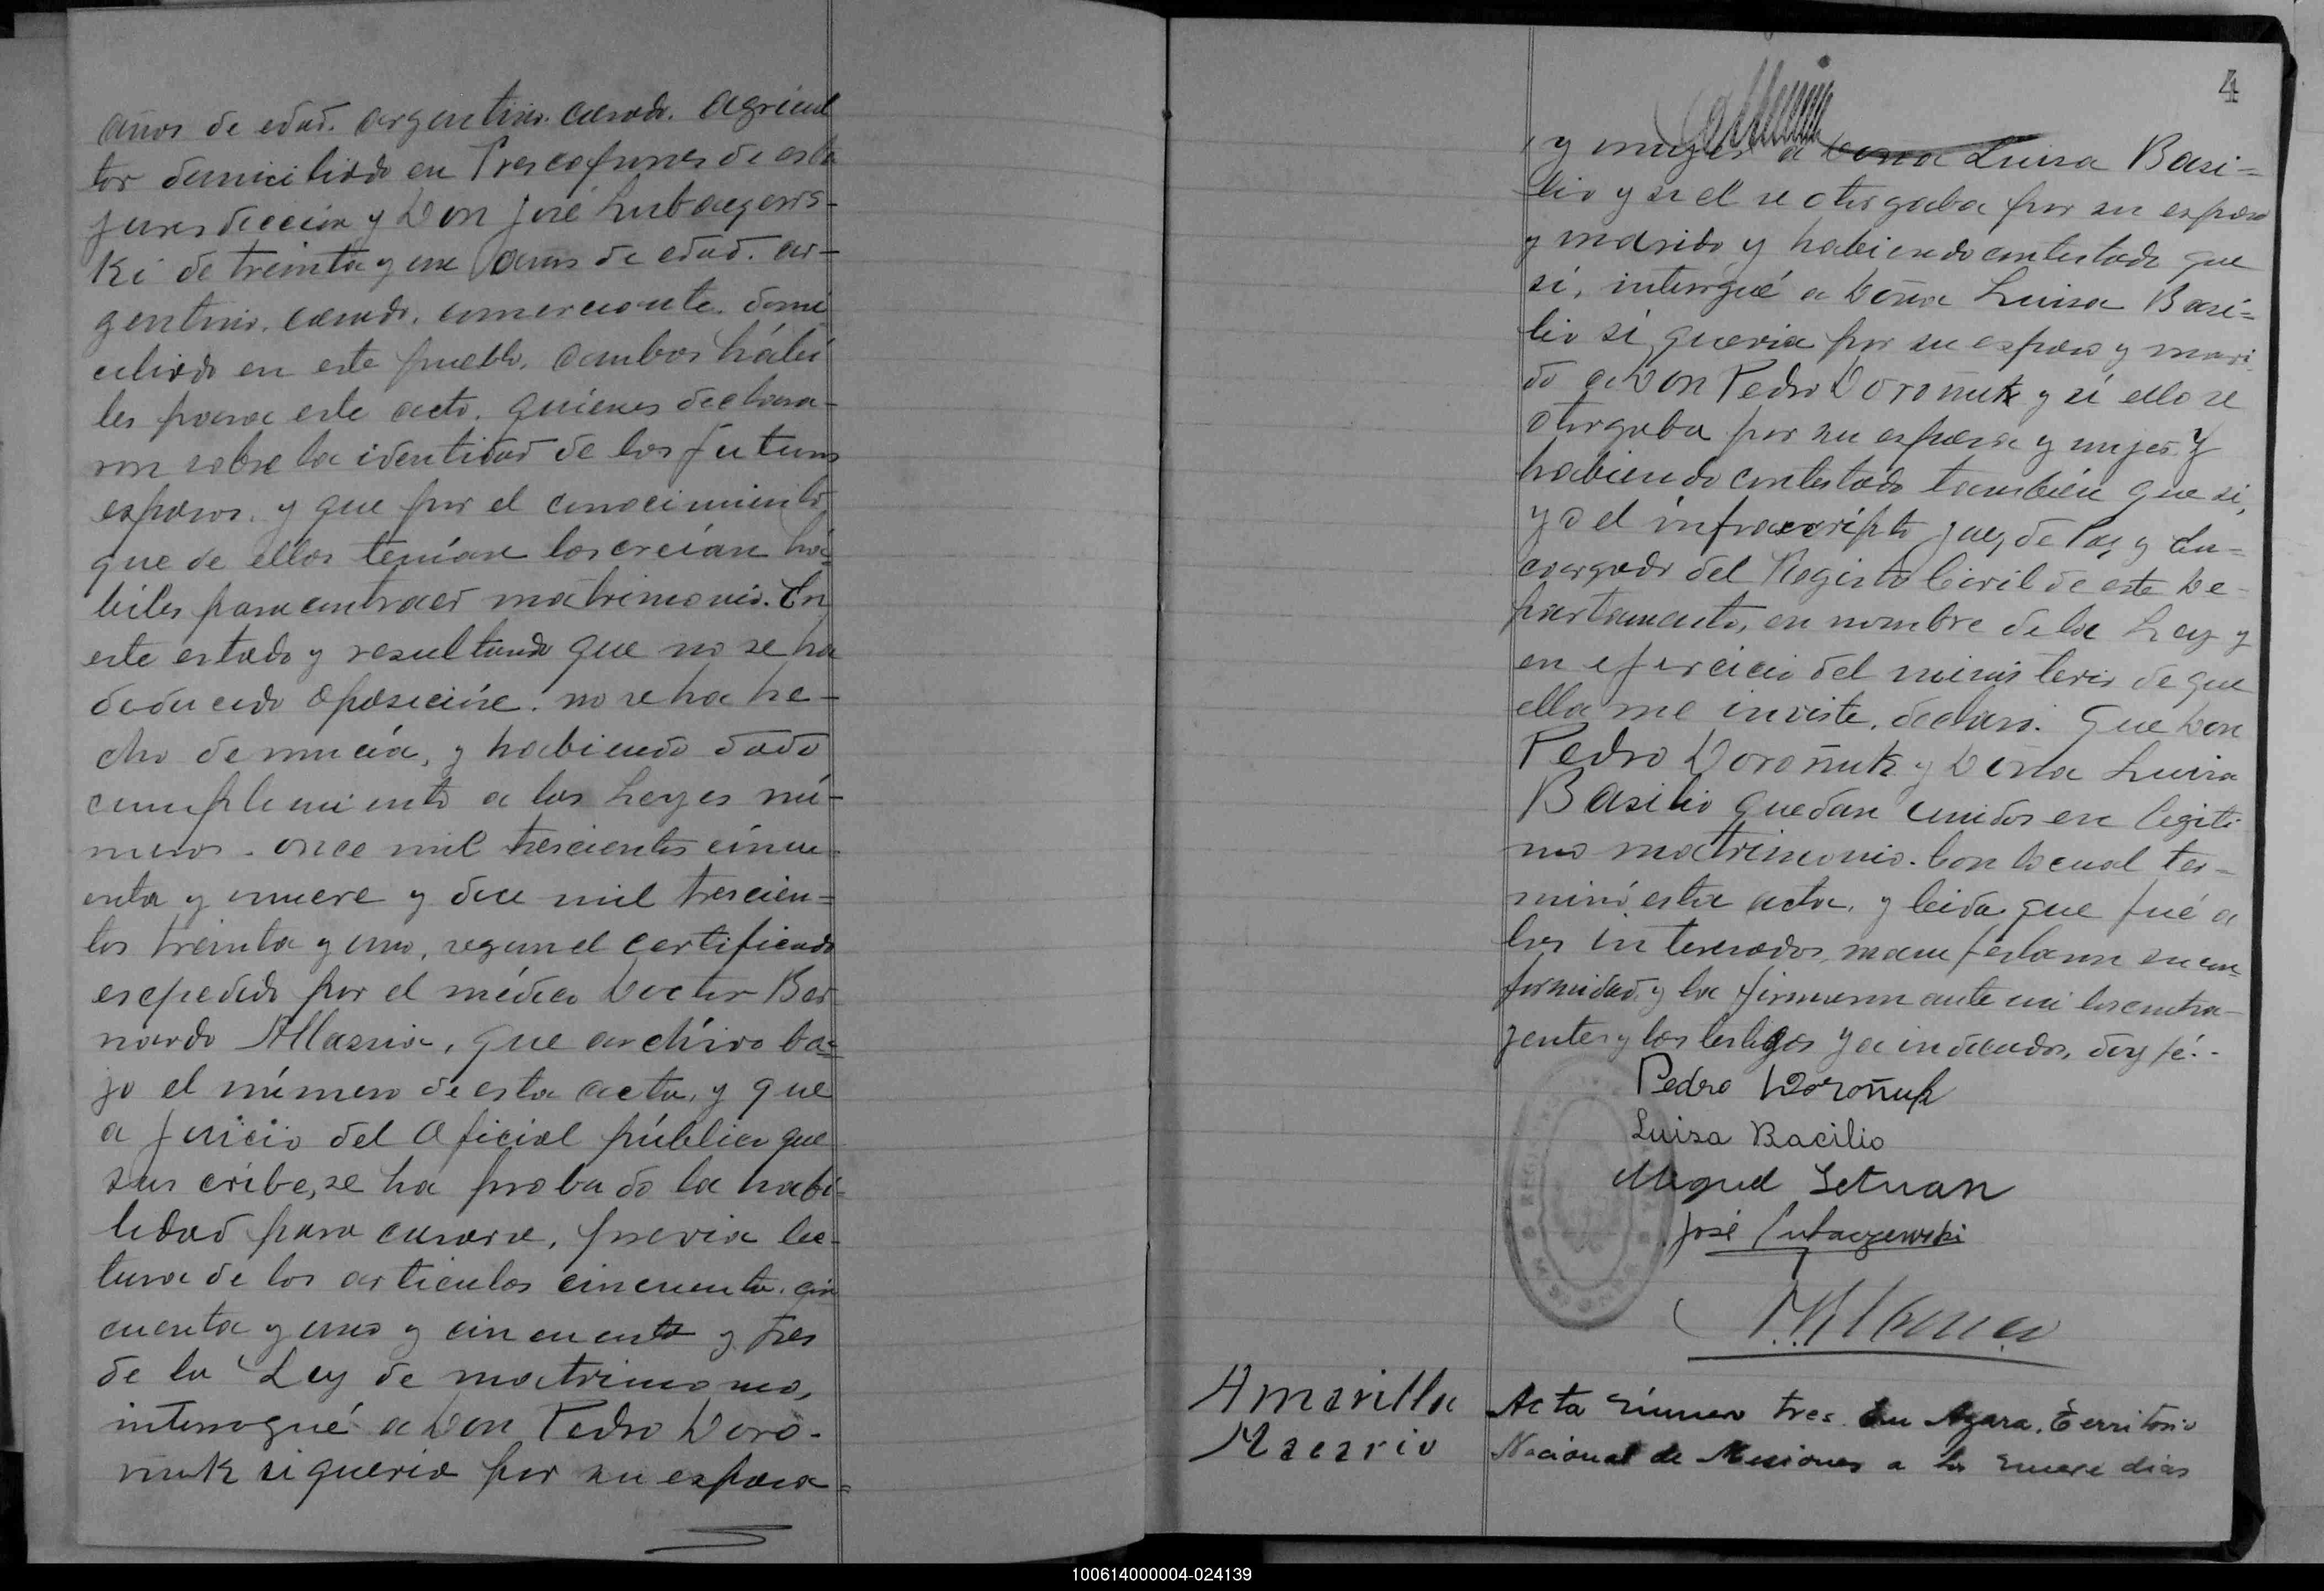 años de edad. argentino. casado. agricul
tor domiciliado en Trescapones de esta
jurisdicción y Don José Lubaczews-
ki de treinta y un años de edad. ar-
gentino. casado. comerciante. domi
ciliado en este pueblo. ambos hábi
les para este acto. quienes declara-
ron sobre la identidad de los futuros
esposos. y que por el conocimiento
que de ellos tenían los creían há-
biles para contraer matrimonio. En
este estado y resultando que no se ha
deducido oposición. no se ha he-
cho denuncia, y habiendo dado
cumplimiento a las Leyes nú-
meros. once mil trescientos cincu-
enta y nueve y doce mil trescien=
tos treinta y uno, segun el certificado
expedido por el médico Doctor Ber
nardo Allasia, que archivo ba=
jo el número de esta acta, y que
a juicio del Oficial público que
suscribe, se ha probado la habi=
lidad para casarse, previa lec-
tura de los articulos cincuenta. cin
cuenta y uno y cincuenta y tres
de la Ley de matrimonio,
interrogué a Don Pedro Doro-
ñuk si queria por su esposa=
4
y mujer a Doña Luisa Basi=
lio y si el se otorgaba por su esposo
y marido y habiendo contestado que
sí, interrogué a Doña Luisa Basi=
lio si queria por su esposo y mari
do a Don Pedro Doroñuk y si ella se
otorgaba por su esposa y mujer. Y
habiendo contestado también que si,
yo el infrascripto Juez de Paz y En=
cargado del Registro Civil de este De-
partamento, en nombre de la Ley y
en ejercicio del ministerio de que
ella me inviste, declaro. Que Don
Pedro Doroñuk y Doña Luisa
Basilio quedan unidos en legiti
mo matrimonio. Con lo cual ter=
minó esta acta, y leida que fué a
los interesados, manifestaron su con
formidad y la firmaron ante mi los contra-
yentes y los testigos ya indicados, doy fé.-
Pedro Doroñuk
Luisa Bacilio
Miguel Setuan
José Lubaczewski
Amarilla
Macario
Acta número tres. En Azara, Territorio
Nacional de Misiones a los nueve dias
100614000004-024139